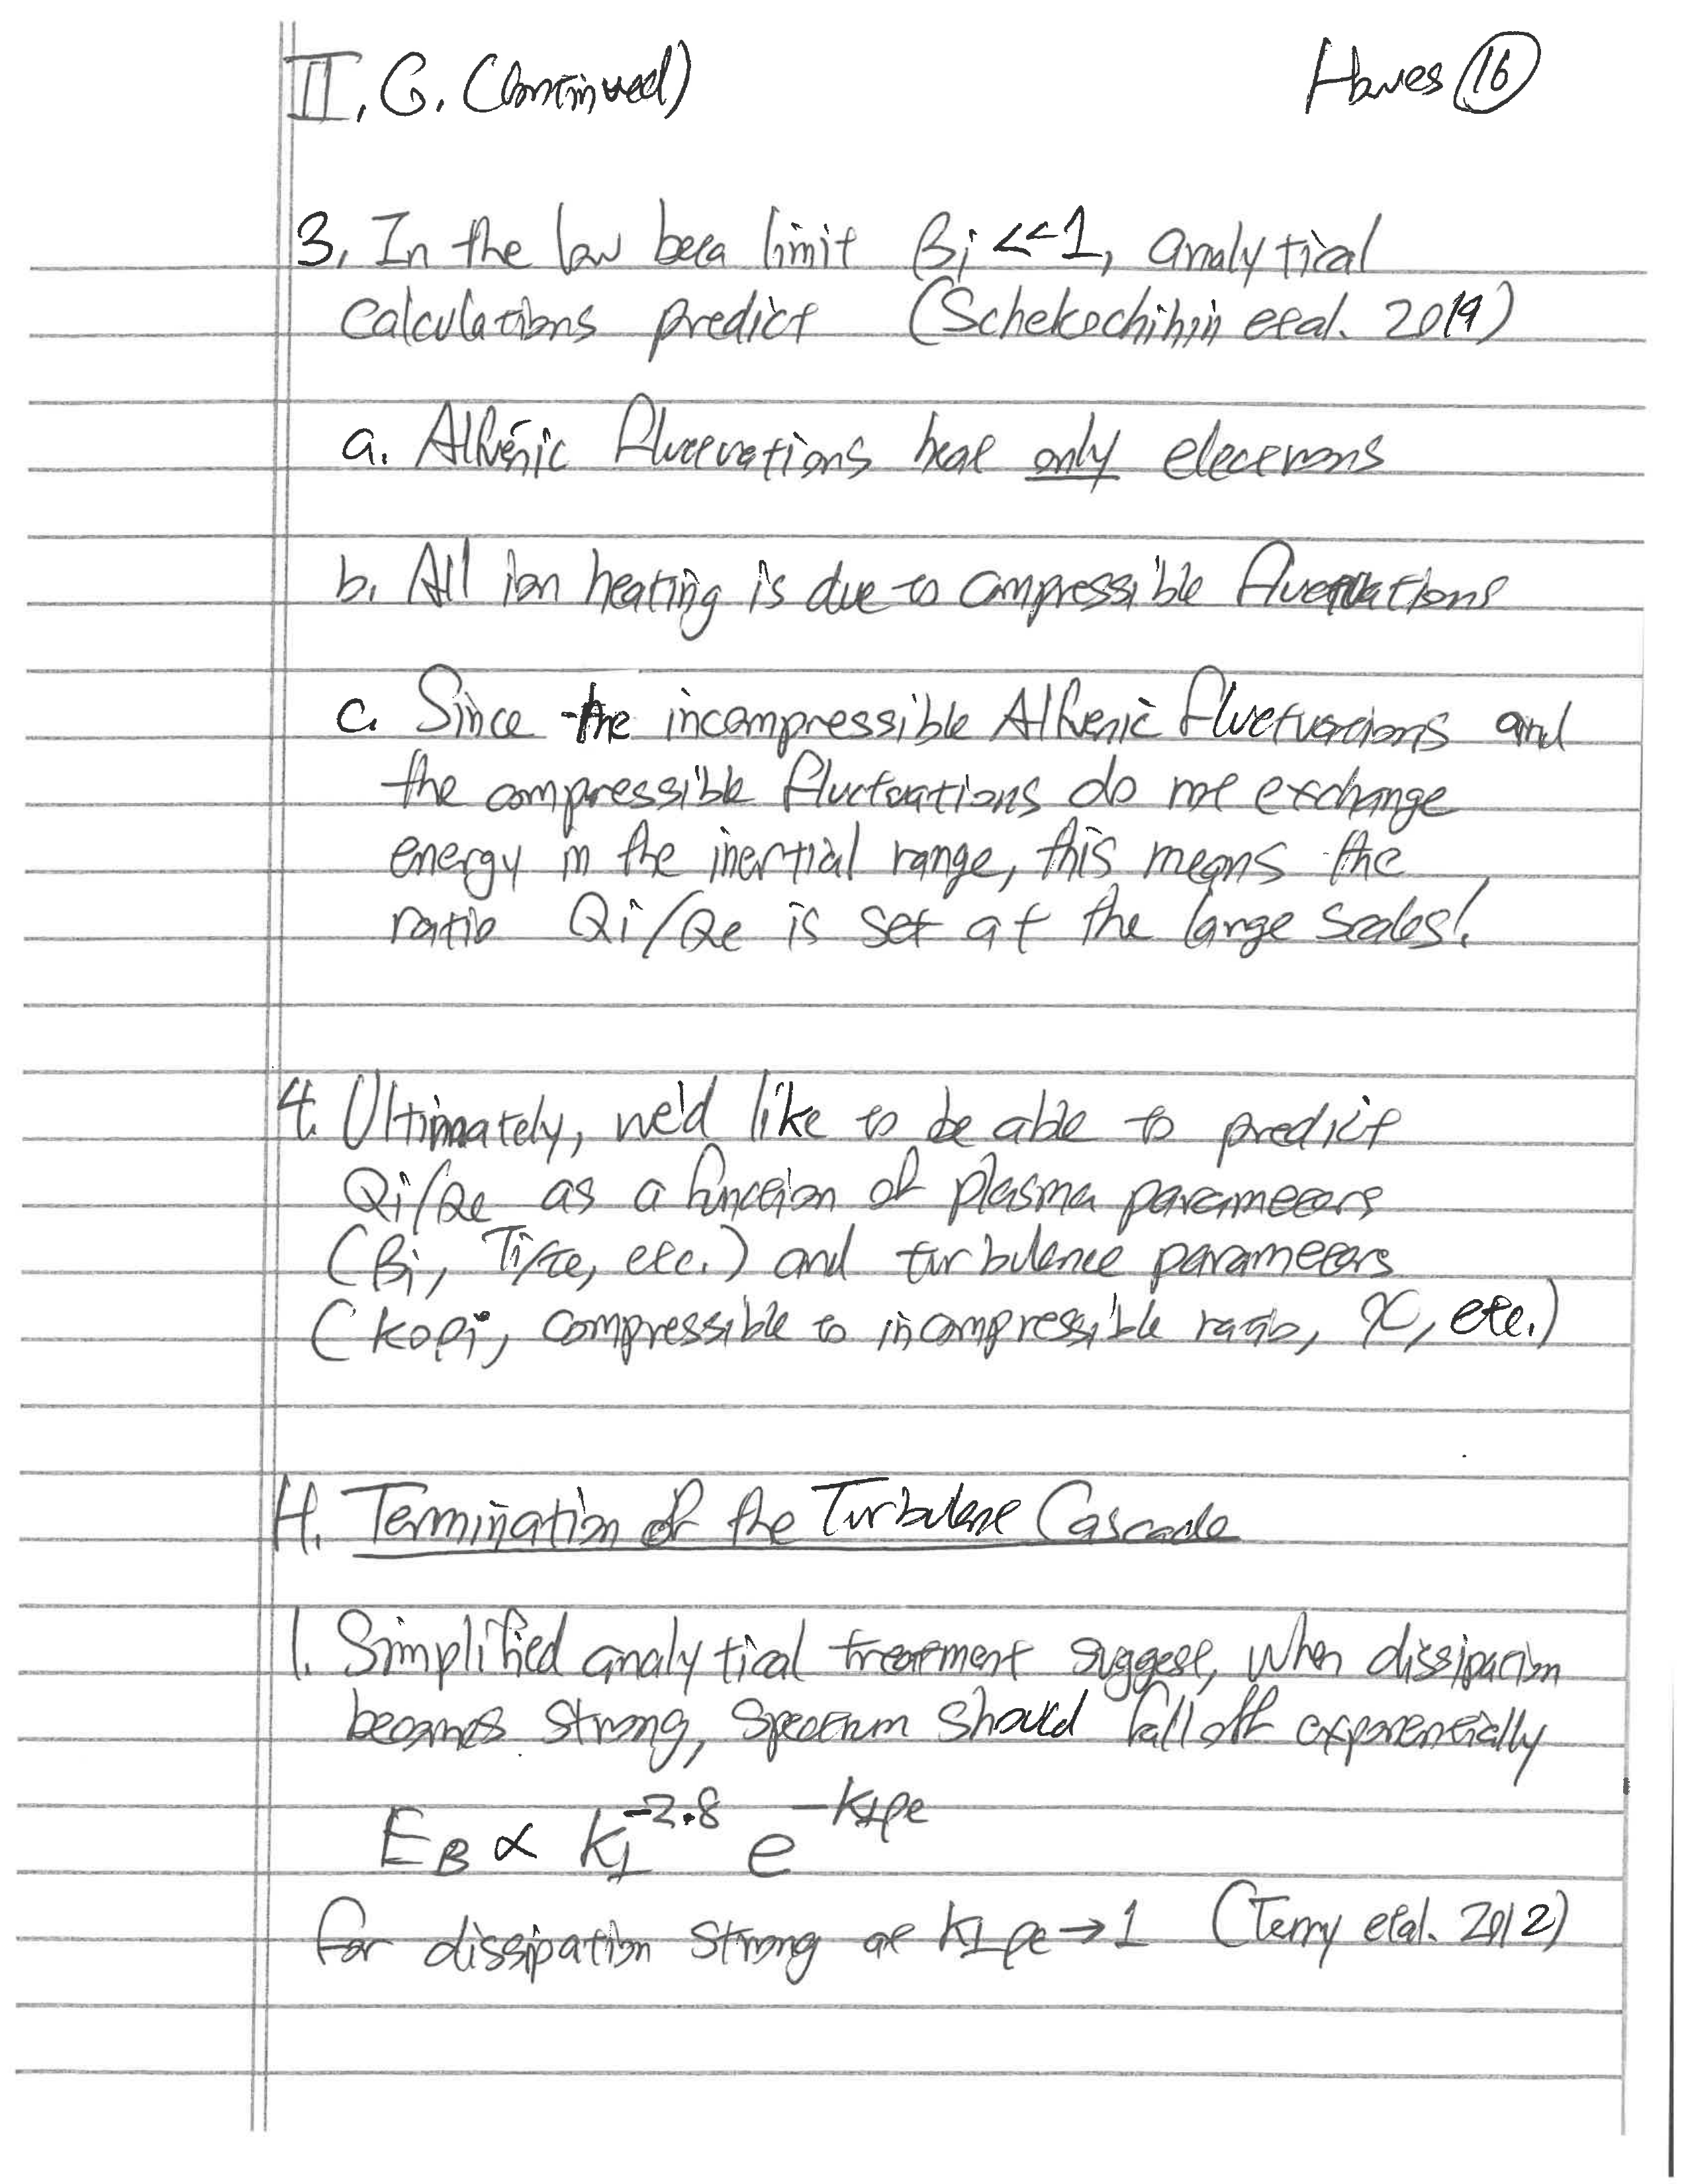 II. G. (Continued) Howes 16
3. In the low beta limit βi <<1, analytical
calculations predict (Schekochihin et al. 2019)
a. Alfvénic fluctuations heat only electrons
b. All ion heating is due to compressible fluctuations
c. Since the incompressible Alfvenic fluctuations and
the compressible fluctuations do not exchange
energy in the inertial range, this means the
ratio Qi/Qe is set at the large scales!
4. Ultimately, we'd like to be able to predict
Qi/Qe as a function of plasma parameters
(βi, Ti/Te, etc.) and turbulence parameters
(k0ρi, compressible to incompressible ratio, χ, etc.)
H. Termination of the Turbulent Cascade
1. Simplified analytical treatment suggest, when dissipation
becomes strong, spectrum should fall off exponentially
E_B ∝ k⊥^-2.8 e^-k⊥ρe
for dissipation strong at k⊥ρe → 1 (Terry et al. 2012)